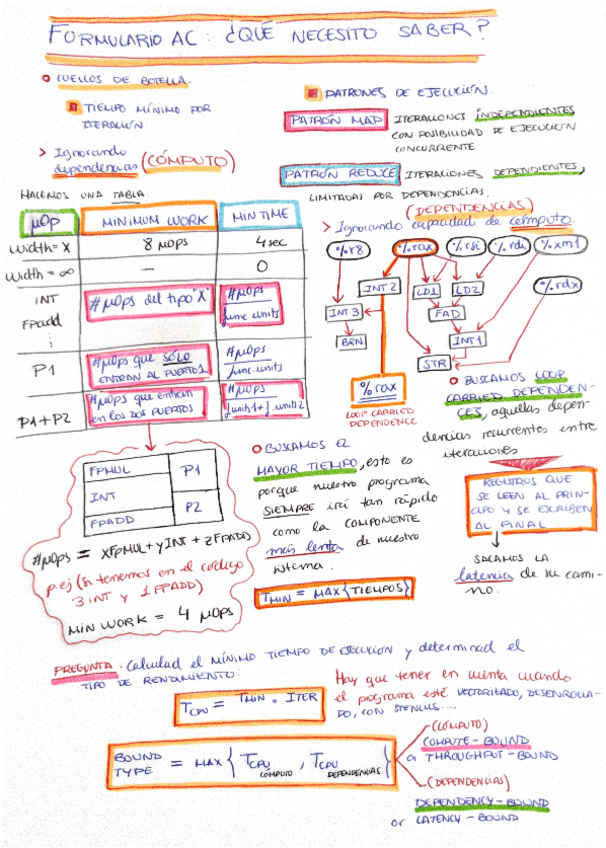 FORMULARIO AC: ¿QUÉ NECESITO SABER?
CUELLOS DE BOTELLA.
TIEMPO MÍNIMO POR
ITERACIÓN.
> Ignorando
dependencias (CÓMPUTO)
HACEMOS UNA TABLA
μOp MINIMUM WORK MIN TIME
width=X 8 μops 4 sec
width=∞ — 0
INT
FPadd
⋮
#μOps del tipo "X"
#μops
func. units
P1
#μops que SÓLO
ENTRAN AL PUERTO 1
#μops
func. units
P1+P2
#μops que entran
en los dos puertos
#μops
funits1+funits2
FPMUL P1
INT
FPADD P2
#μops = xFPMUL+yINT+zFPADD
p.ej (si tenemos en el código
3 INT y 1 FPADD)
MIN WORK = 4 μops
PATRONES DE EJECUCIÓN.
PATRÓN MAP ITERACIONES INDEPENDIENTES
CON POSIBILIDAD DE EJECUCIÓN
CONCURRENTE
PATRÓN REDUCE ITERACIONES DEPENDIENTES,
LIMITADAS POR DEPENDENCIAS.
(DEPENDENCIAS)
> Ignorando capacidad de cómputo.
%r8 %rax %rsi %rdi %xm1
INT2 LD1 LD2 %rdx
INT3 FAD
BRN INT1
STR
%rax
LOOP CARRIED
DEPENDENCE
BUSCAMOS LOOP
CARRIED DEPENDEN-
CES, aquellas depen-
dencias recurrentes entre
iteraciones
REGISTROS QUE
SE LEEN AL PRIN-
CIPIO Y SE ESCRIBEN
AL FINAL
SACAMOS LA
latencia de su cami-
no.
BUSCAMOS EL
MAYOR TIEMPO, esto es
porque nuestro programa
SIEMPRE irá tan rápido
como la COMPONENTE
más lenta de nuestro
sistema.
TMIN = MAX{TIEMPOS}
PREGUNTA: calculad el MÍNIMO TIEMPO DE EJECUCIÓN y determinad el
TIPO DE RENDIMIENTO:
TCPU = TMIN · ITER
Hay que tener en cuenta cuando
el programa esté VECTORIZADO, DESENROLLA-
DO, CON STENCILS....
BOUND
TYPE = MAX { TCPU CÓMPUTO , TCPU DEPENDENCIAS }
(CÓMPUTO)
COMPUTE-BOUND
or THROUGHPUT-BOUND
(DEPENDENCIAS)
DEPENDENCY-BOUND
or LATENCY-BOUND